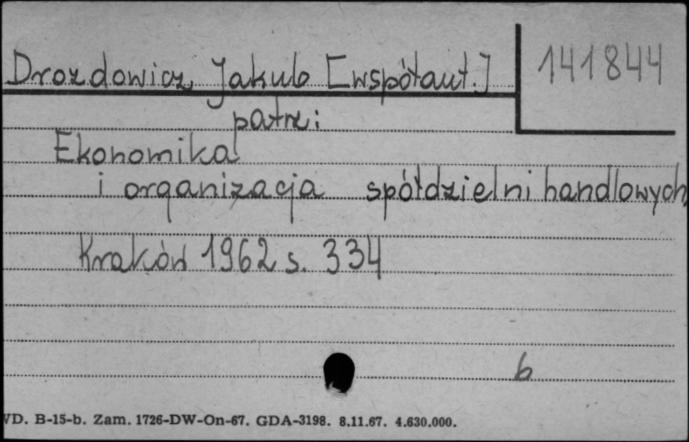 Drozdowicz Jakub [współaut.]
141844
patrz:
Ekonomika
i organizacja spółdzielni handlowych
Kraków 1962 s. 334
b
VD. B-15-b. Zam. 1726-DW-On-67. GDA-3198. 8.11.67. 4.630.000.